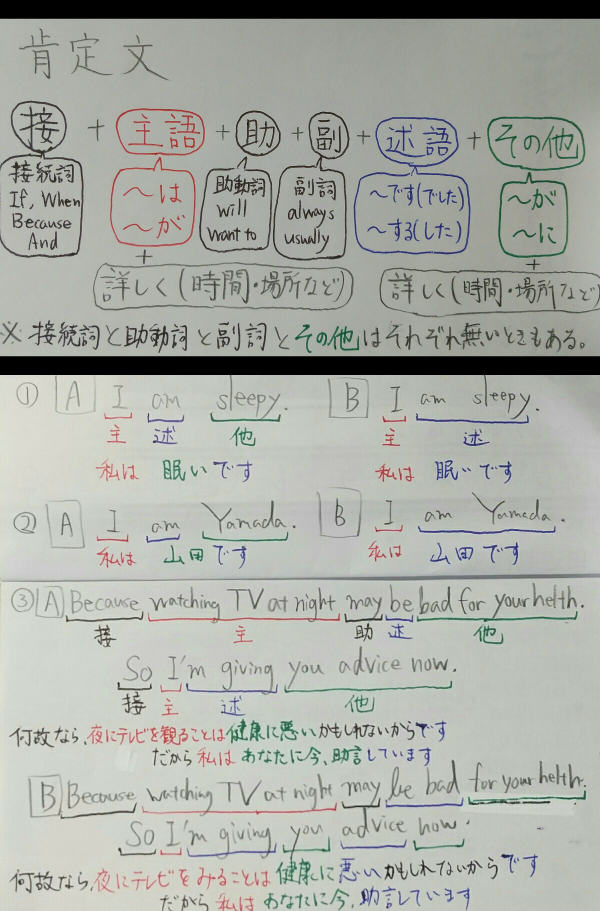 肯定文
接 + 主語 + 助 + 副 + 述語 + その他
接続詞
If, When
Because
And
～は
～が
助動詞
will
want to
副詞
always
usually
～です(でした)
～する(した)
～が
～に
+
詳しく(時間・場所など)
+
詳しく(時間・場所など)
※ 接続詞と助動詞と副詞とその他はそれぞれ無いときもある。
① A I am sleepy.
主 述 他
私は 眠いです
B I am sleepy.
主 述
私は 眠いです
② A I am Yamada.
私は 山田です
B I am Yamada.
私は 山田です
③ A Because watching TV at night may be bad for your helth.
接 主 助 述 他
So I'm giving you advice now.
接 主 述 他
何故なら、夜にテレビを観ることは健康に悪いかもしれないからです
だから私はあなたに今、助言しています
B Because watching TV at night may be bad for your helth.
So I'm giving you advice now.
何故なら、夜にテレビをみることは健康に悪いかもしれないからです
だから私はあなたに今、助言しています